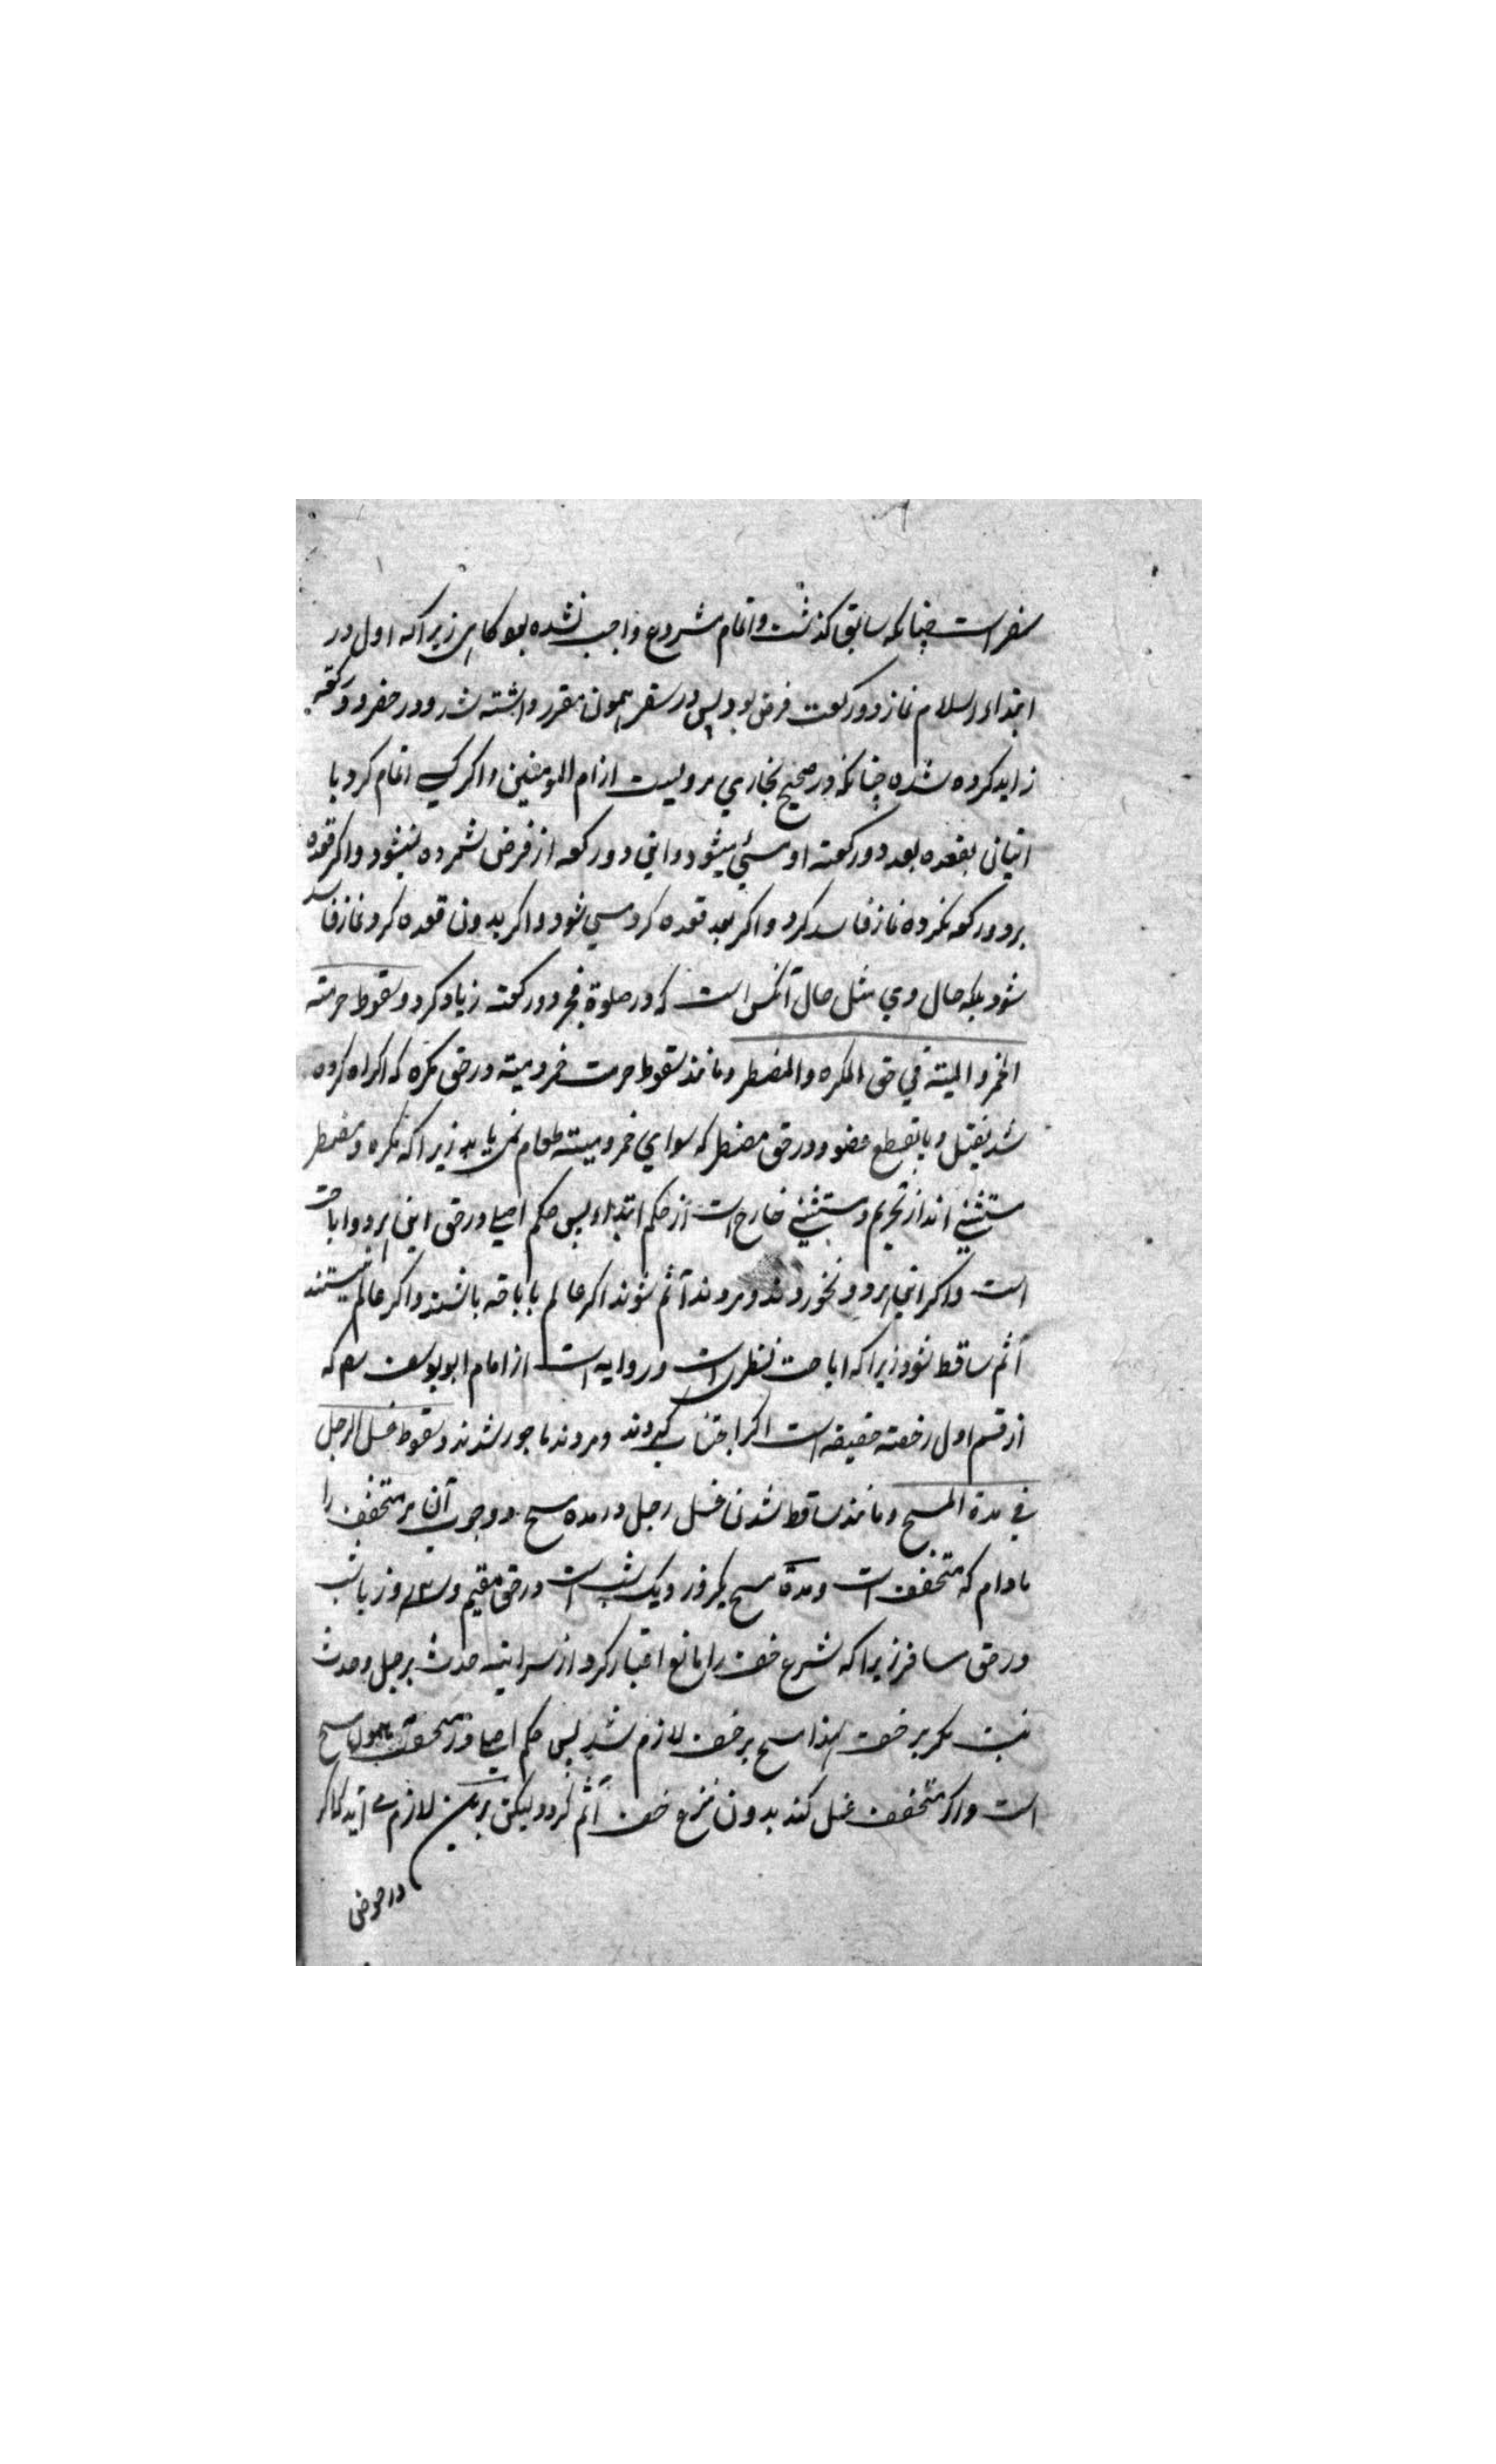 سفر است چنانکه سابق کذشت و اتمام مشروع واجب نشده بود کاهی زیراکه اول در
ابتداء اسلام نماز دو رکعت فرض بود پس در سفر همون مقرر داشته شد و در حضر دو رکعته
زاید کرده شده چنانکه در صحیح بخاري مرویست از ام المومنین و اکر کسے اتمام کرد با
اتیان بقعده بعد دو رکعته او مسئي میشود و این دو رکعه از فرض شمرده نمیشود و اکر قعده
بر دو رکعه نکرده نماز فاسد کرد و اکر بعد قعده کرد مسي شود و اکر بدون قعده کرد نماز فاسد
شود بلکه حال وي مثل حال آنکس است که در صلوة فجر دو رکعته زیاد کرد و سقوط حرمته
الخمر و المیته في حق المکره و المضطر و مانند سقوط حرمت خمر و میته در حق مکره که اکراه کرده
شد بقتل و یا بقطع عضو و در حق مضطر که سواي خمر و میته طعام نمی یابد زیراکه مکره و مضطر
مستثنے اند از تحریم و مستثنے خارج است از حکم ابتداء پس حکم اصلے در حق این هر دو اباحت
است و اکر این هر دو نخوردند و مردند آثم شوند اکر عالم باباحة باشند و اکر عالم نیستند
اثم ساقط شود زیراکه اباحت نظری است و روایه است از امام ابو یوسف که
از قسم اول رخصته حقیقه است اکر اجتناب کردند و مردند ماجور شدند و سقوط غسل الرجل
في مدة المسح و مانند ساقط شدن غسل رجل در مده مسح و وجوب آن بر متخفف را
مادام که متخفف است و مدة مسح یکروز و یک شب است در حق مقیم و سه روز با شب
در حق مسافر زیراکه شرع خف را مانع اعتبار کرد از سرایت حدث برجل و حدث
نیست مکر بر خف لهذا مسح بر خف لازم شد پس حکم اصلے در متخفف همون مسح
است و اکر متخفف غسل کند بدون نزع خف آثم کردد لیکن برین لازم مے آید که اکر
در حوض